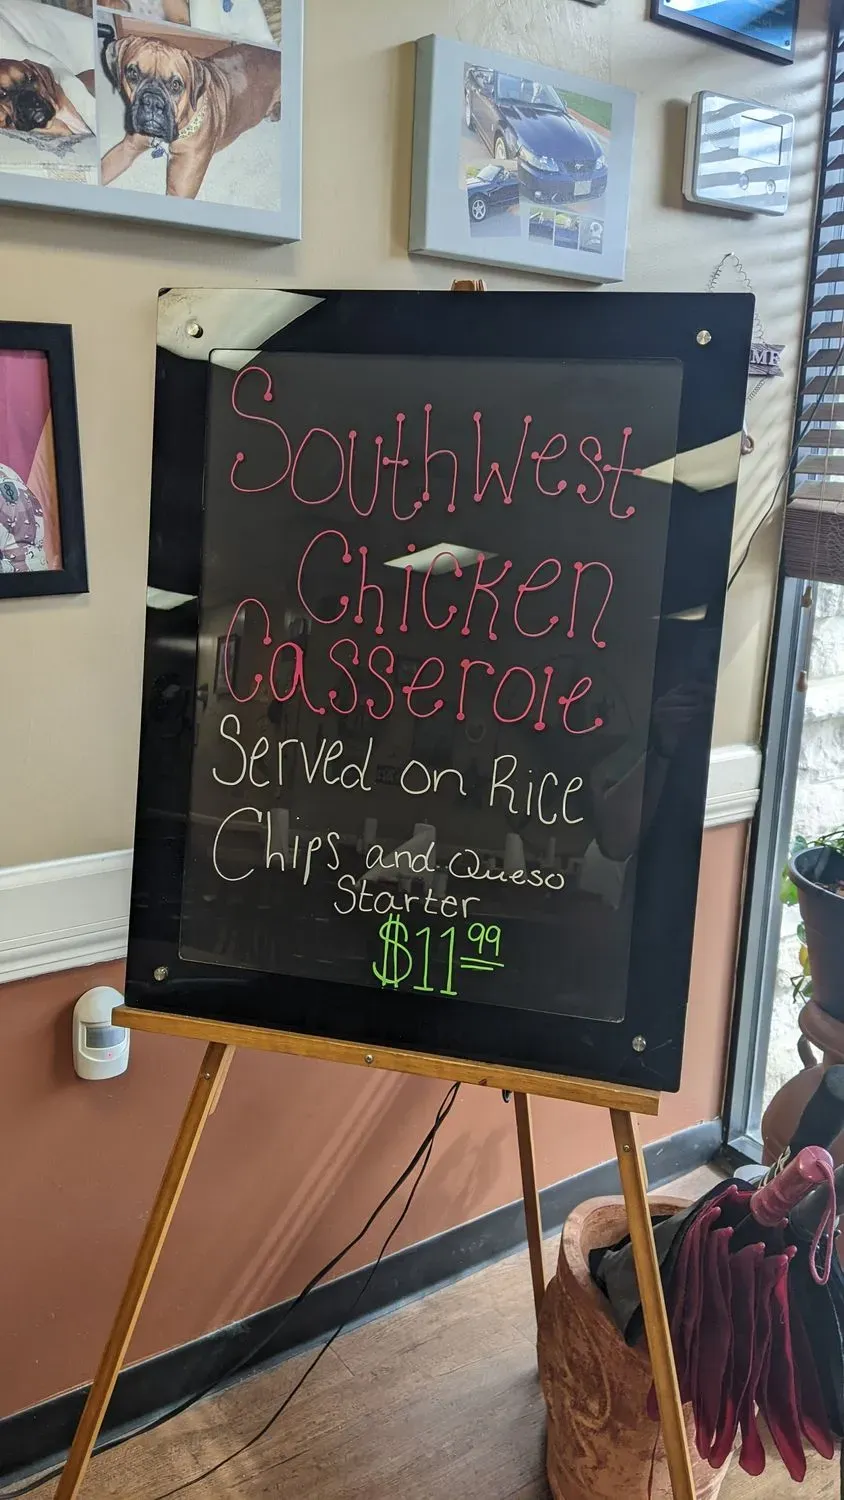 Southwest
Chicken
Casserole
Served on Rice
Chips and Queso
Starter
$11.99